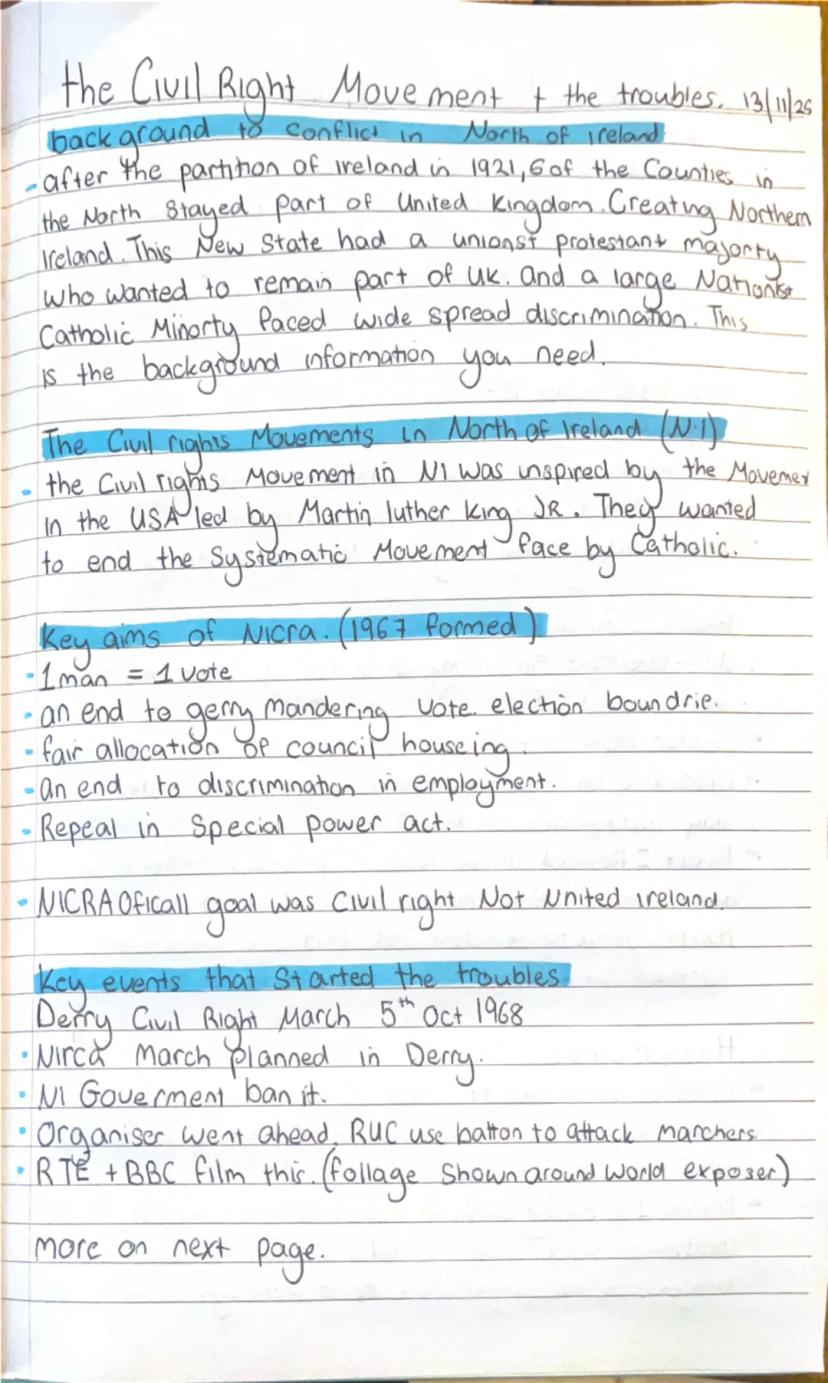 the Civil Right Movement + the troubles. 13/11/25
background to conflict in North of ireland
- after the partition of ireland in 1921, 6 of the Counties in
the North Stayed part of United Kingdom. Creating Northern
Ireland. This New State had a unionst protestant majorty
who wanted to remain part of UK. and a large Nationlist
Catholic Minorty faced wide spread discrimination. This
is the background information you need.
The Civil rights Movements in North of Ireland (N.I)
- the Civil rights Movement in NI was inspired by the Movemen
in the USA led by Martin luther King JR. They wanted
to end the Systematic Movement face by Catholic.
Key aims of Nicra. (1967 formed)
• 1 man = 1 vote
• an end to gerry mandering vote. election boundrie.
• fair allocation of council houseing.
• An end to discrimination in employment.
• Repeal in Special power act.
• NICRA Oficall goal was Civil right Not United ireland.
Key events that Started the troubles.
Derry Civil Right March 5th Oct 1968
• Nirca March planned in Derry.
• NI Goverment ban it.
• Organiser went ahead. RUC use batton to attack marchers
• RTE + BBC film this. (follage Shown around World exposer)
more on next page.